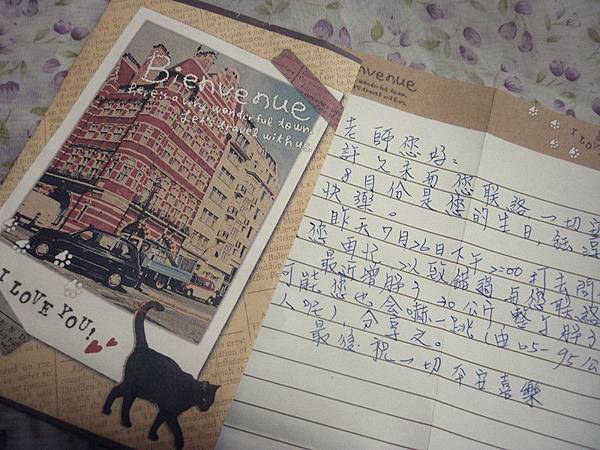 Bienvenue
here's a very wonderful town.
Let's travel with us.
I LOVE YOU!
nvenue
wonderful town,
travel with us.
I LO
老師您好:
許久未與您联絡一切
8月份是您的生日,
快樂。
昨天7月26日下午2:00打去問
您
最近增胖了30公斤整
可能您也会嚇一跳(由65-95公
人呢),分享之。
最後祝一切平安喜樂